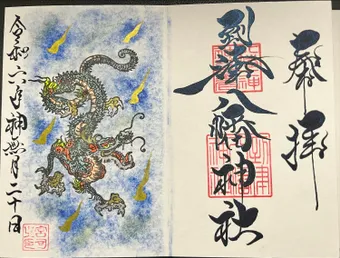 奉拝
到津八幡神社
令和六年神無月二十日